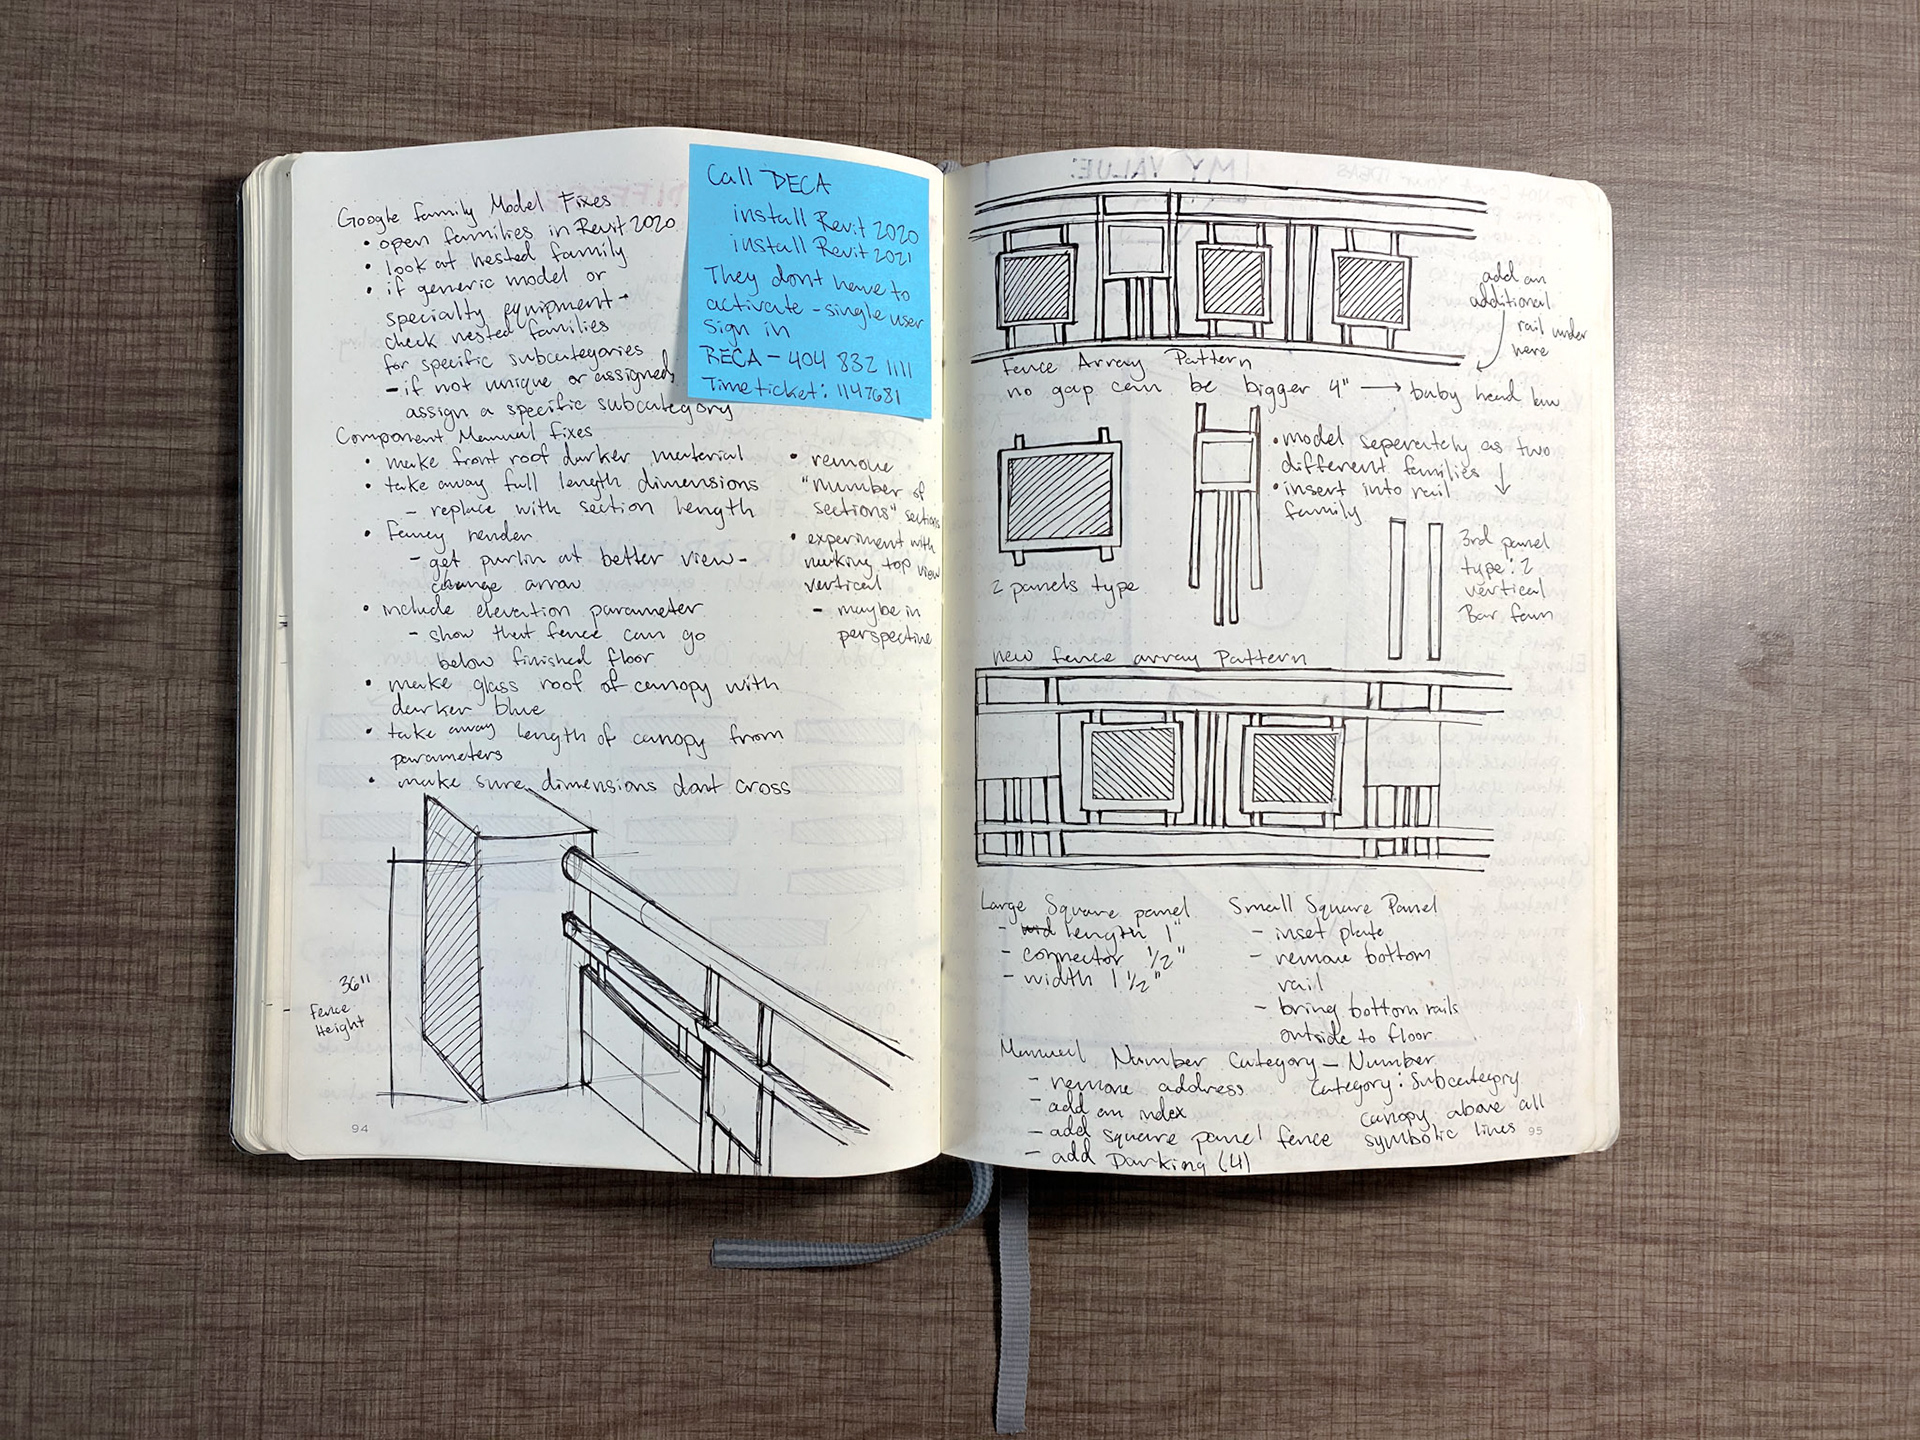 Google Family Model Fixes
• open families in Revit 2020
• look at nested family
• if generic model or
specialty equipment -
check nested families
for specific subcategories
- if not unique or assigned
assign a specific subcategory
Component Manual Fixes
• make front roof darker material
• take away full length dimensions
- replace with section length
• Fancy render
- get purlin at better view -
change array
• include elevation parameter
- show that fence can go
below finished floor
• make glass roof of canopy with
darker blue
• take away length of canopy from
parameters
• make sure dimensions dont cross
• remove
"number of
sections" sections
• experiment with
making top view
vertical
- maybe in
perspective
Call DECA
install Revit 2020
install Revit 2021
They dont have to
activate - single user
sign in
RECA - 404 832 1111
Time ticket: 1147681
36"
Fence
Height
94
MY VALUE:
add an
additional
rail under
here
Fence Array Pattern
no gap can be bigger 4" → baby head law
• model seperately as two
different families ↓
• insert into rail
family
2 panels type
3rd panel
type: 2
vertical
Bar fam
new fence array Pattern
Large Square panel
- length 1"
- connector 1/2"
- width 1 1/2"
Small Square Panel
- inset plate
- remove bottom
rail
- bring bottom rails
outside to floor
Manual Number Category - Number
Category: Subcategory
- remove address
- add an index
- add square panel fence
- add Parking (4)
canopy above all
symbolic lines
95